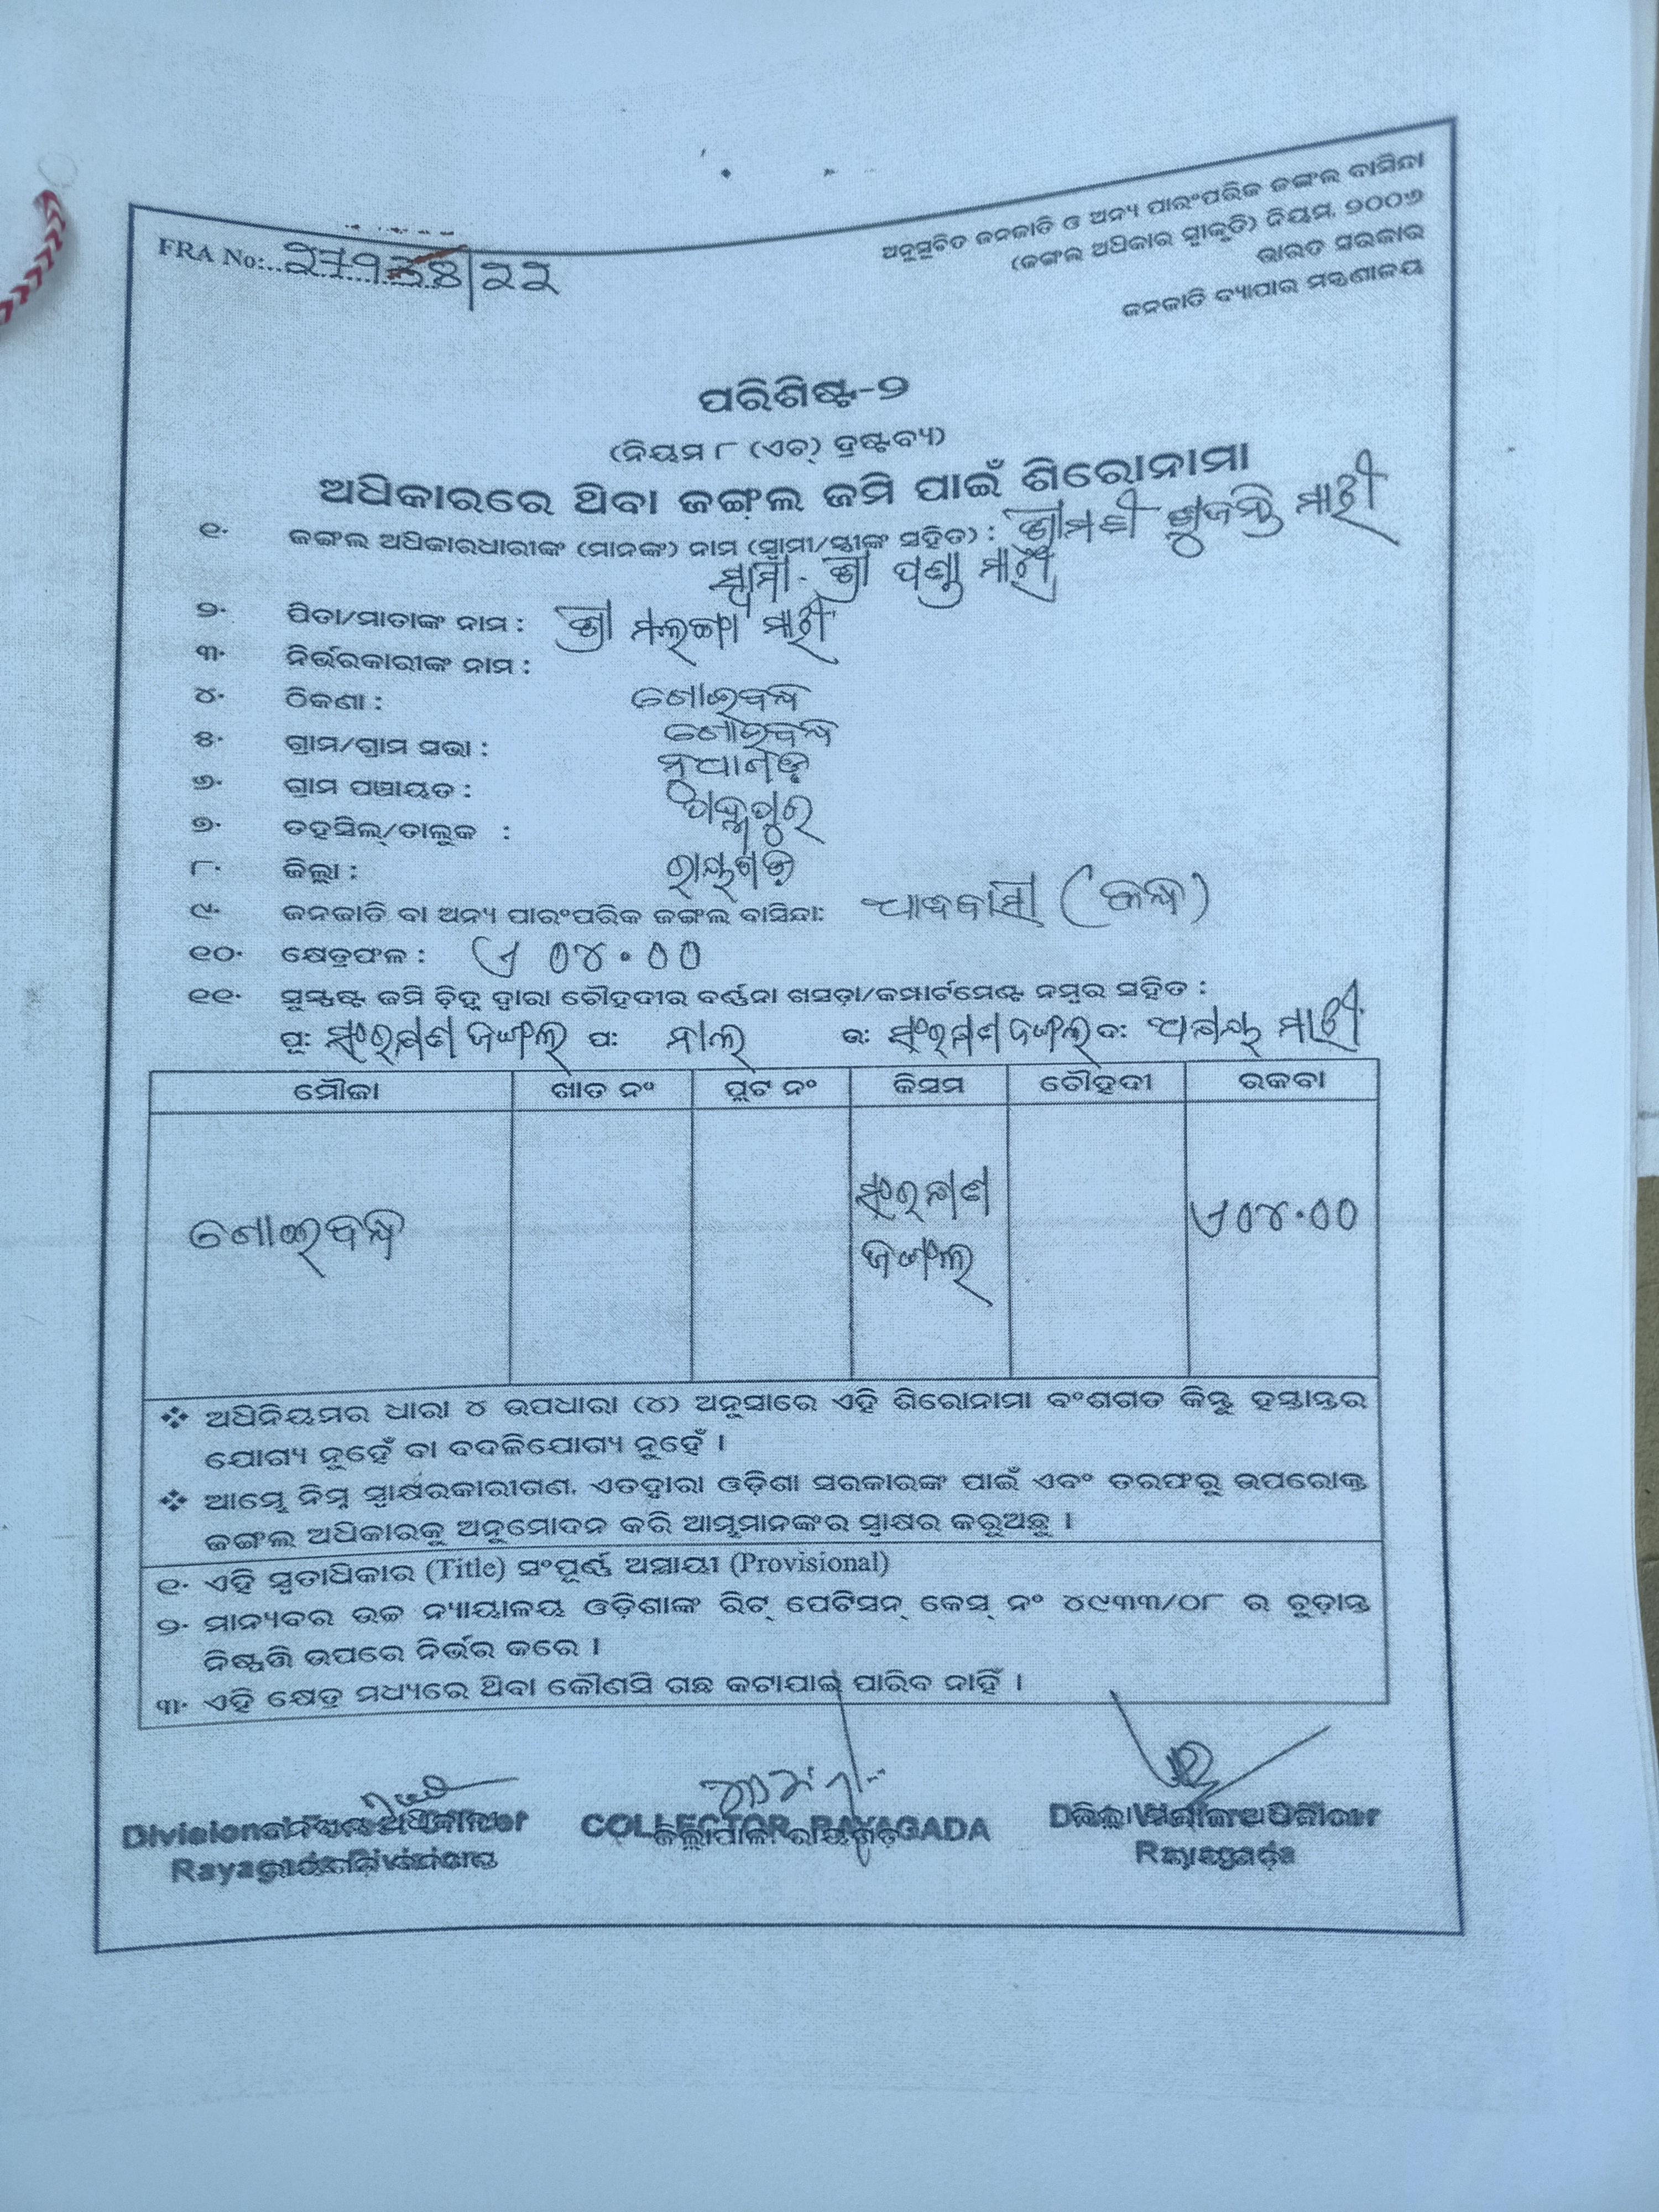 FRA No:
ଅନୁସୂଚିତ ଜନଜାତି ଓ ଅନ୍ୟ ପାରଂପରିକ ଜଙ୍ଗଲ ବାସିନ୍ଦା
(ଜଙ୍ଗଲ ଅଧିକାର ସ୍ୱୀକୃତି) ନିୟମ, ୨୦୦୭
ଭାରତ ସରକାର
ଜନଜାତି ବ୍ୟାପାର ମନ୍ତ୍ରଣାଳୟ
ପରିଶିଷ୍ଟ-୨
(ନିୟମ ୮ (ଏଚ୍) ଦ୍ରଷ୍ଟବ୍ୟ)
ଅଧିକାରରେ ଥିବା ଜଙ୍ଗଲ ଜମି ପାଇଁ ଶିରୋନାମା
୧. ଜଙ୍ଗଲ ଅଧିକାରଧାରୀଙ୍କ (ମାନଙ୍କ) ନାମ (ସ୍ୱାମୀ/ସ୍ତ୍ରୀଙ୍କ ସହିତ) : ଶ୍ରୀମତୀ ସୁଜନ୍ତି ମାଝୀ
ସ୍ୱାମୀ- ଶ୍ରୀ ପଣ୍ଡା ମାଝୀ
୨. ପିତା/ମାତାଙ୍କ ନାମ : ଶ୍ରୀ ମାଝୀ
୩. ନିର୍ଭରକାରୀଙ୍କ ନାମ :
୪. ଠିକଣା :
୫. ଗ୍ରାମ/ଗ୍ରାମ ସଭା :
୬. ଗ୍ରାମ ପଞ୍ଚାୟତ :
୭. ତହସିଲ୍/ତାଲୁକ : ପଦ୍ମପୁର
୮. ଜିଲ୍ଲା : ରାୟଗଡ଼
୯. ଜନଜାତି ବା ଅନ୍ୟ ପାରଂପରିକ ଜଙ୍ଗଲ ବାସିନ୍ଦା: ଆଦିବାସୀ (କନ୍ଧ)
୧୦. କ୍ଷେତ୍ରଫଳ : ଏ ୦୪.୦୦
୧୧. ସୁସ୍ପଷ୍ଟ ଜମି ଚିହ୍ନ ଦ୍ୱାରା ଚୌହଦୀର ବର୍ଣ୍ଣନା ଖସଡ଼ା/କମ୍ପାର୍ଟମେଣ୍ଟ ନମ୍ବର ସହିତ :
ପୂ: ସଂରକ୍ଷଣ ଜଙ୍ଗଲ ପ: ନାଲ ଉ: ସଂରକ୍ଷଣ ଜଙ୍ଗଲ ଦ: ଅକ୍ଷୟ ମାଝୀ
ମୌଜା ଖାତା ନଂ ପ୍ଲଟ ନଂ କିସମ ଚୌହଦୀ ରକବା
ସଂରକ୍ଷଣ
ଜଙ୍ଗଲ
ଏ ୦୪.୦୦
❖ ଅଧିନିୟମର ଧାରା ୪ ଉପଧାରା (୪) ଅନୁସାରେ ଏହି ଶିରୋନାମା ବଂଶଗତ କିନ୍ତୁ ହସ୍ତାନ୍ତର
ଯୋଗ୍ୟ ନୁହେଁ ବା ବଦଳିଯୋଗ୍ୟ ନୁହେଁ ।
❖ ଆମ୍ଭେ ନିମ୍ନ ସ୍ୱାକ୍ଷରକାରୀଗଣ, ଏତଦ୍ୱାରା ଓଡ଼ିଶା ସରକାରଙ୍କ ପାଇଁ ଏବଂ ତରଫରୁ ଉପରୋକ୍ତ
ଜଙ୍ଗଲ ଅଧିକାରକୁ ଅନୁମୋଦନ କରି ଆମ୍ଭମାନଙ୍କର ସ୍ୱାକ୍ଷର କରୁଅଛୁ ।
୧. ଏହି ସ୍ୱତାଧିକାର (Title) ସଂପୂର୍ଣ୍ଣ ଅସ୍ଥାୟୀ (Provisional)
୨. ମାନ୍ୟବର ଉଚ୍ଚ ନ୍ୟାୟାଳୟ ଓଡ଼ିଶାଙ୍କ ରିଟ୍ ପେଟିସନ୍ କେସ୍ ନଂ ୪୯୩୩/୦୮ ର ଚୁଡ଼ାନ୍ତ
ନିଷ୍ପତ୍ତି ଉପରେ ନିର୍ଭର କରେ ।
୩. ଏହି କ୍ଷେତ୍ର ମଧ୍ୟରେ ଥିବା କୌଣସି ଗଛ କଟାଯାଇ ପାରିବ ନାହିଁ ।
Divisional Forest Officer
Rayagada Division
COLLECTOR, RAYAGADA
ଜିଲ୍ଲାପାଳ, ରାୟଗଡ଼
Dist. Welfare Officer
Rayagada